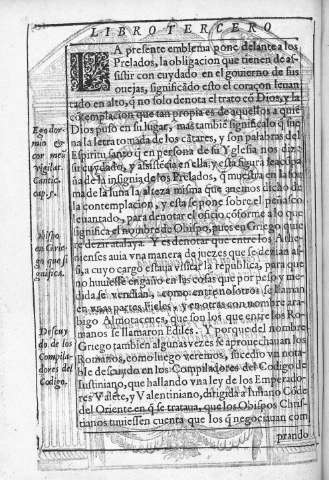 LIBRO TERCERO
LA presente emblema pone delante a los
Prelados, la obligacion que tienen de as-
sistir con cuydado en el gouierno de sus
ouejas, significãdo esto el coraçon leuan
tado en alto, q̃ no solo denota el trato cõ Dios, y la
cõtemplacion que tan propia es de aquellos a quiẽ
Dios puso en su lugar, mas tambiẽ significalo q̃ sue
na la letra tomada de los cãtares, y son palabras del
Espiritu santo q̃ en persona de su Yglesia nos dize
su cuydado, y assistẽcia en ella, y esta figura se acõpa
ña de la insignia de los Prelados, q̃ muestra en la for
ma de la suya la alteza misma que auemos dicho de
la contemplacion, y esta se pone sobre el peñasco
leuantado, para denotar el oficio cõforme a lo que
significa el nombre de Obispo, pues en Griego quie
re dezir atalaya. Y es de notar que entre los Athe-
nienses auia vna manera de juezes que se dezian assi,
a cuyo cargo estaua visitar la republica, para que
no huuiesse engaño en las cosas que por peso y me-
dida se vendian, como entre nosotros se llaman
en vnas partes Fieles, y en otras con nombre ara-
bigo Almotacenes, que son los que entre los Ro-
manos se llamaron Ediles. Y porque del nombre
Griego tambien algunas vezes se aprouechauan los
Romanos, como luego veremos, sucedio vn nota-
ble descuydo en los Compiladores del Codigo de
Iustiniano, que hallando vna ley de los Emperado-
res Valẽte, y Valentiniano, dirigida a Iuliano Cõde
del Oriente en q̃ se trataua, que los Obispos Chris-
tianos tuuiessen cuenta que los q̃ negociauan com
prando
Ego dor-
mio &
cor meũ
vigilat.
Cantic.
cap. 5.
Obispo
en Grie-
go que si
gnifica.
Descuy
do de los
Compila-
dores del
Codigo.